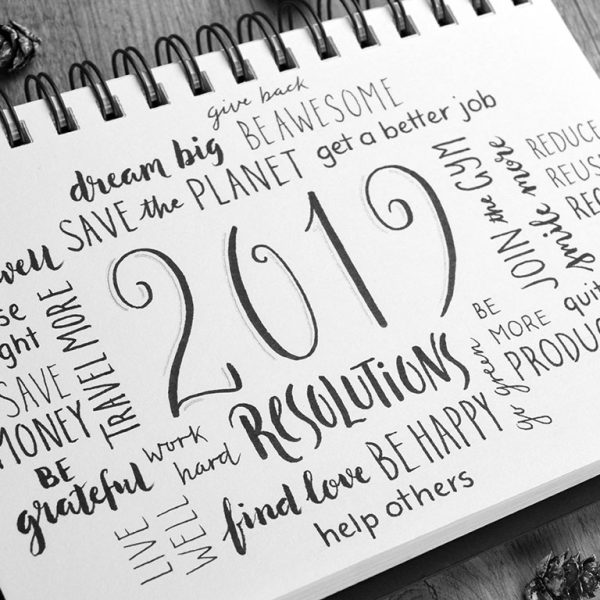 give back
dream big
BE AWESOME
SAVE the PLANET
get a better job
2019
RESOLUTIONS
JOIN the GYM
smile more
REDUCE
well
TRAVEL MORE
SAVE
MONEY
BE
grateful
work
hard
LIVE
WELL
find love
BE HAPPY
help others
go green
BE
MORE